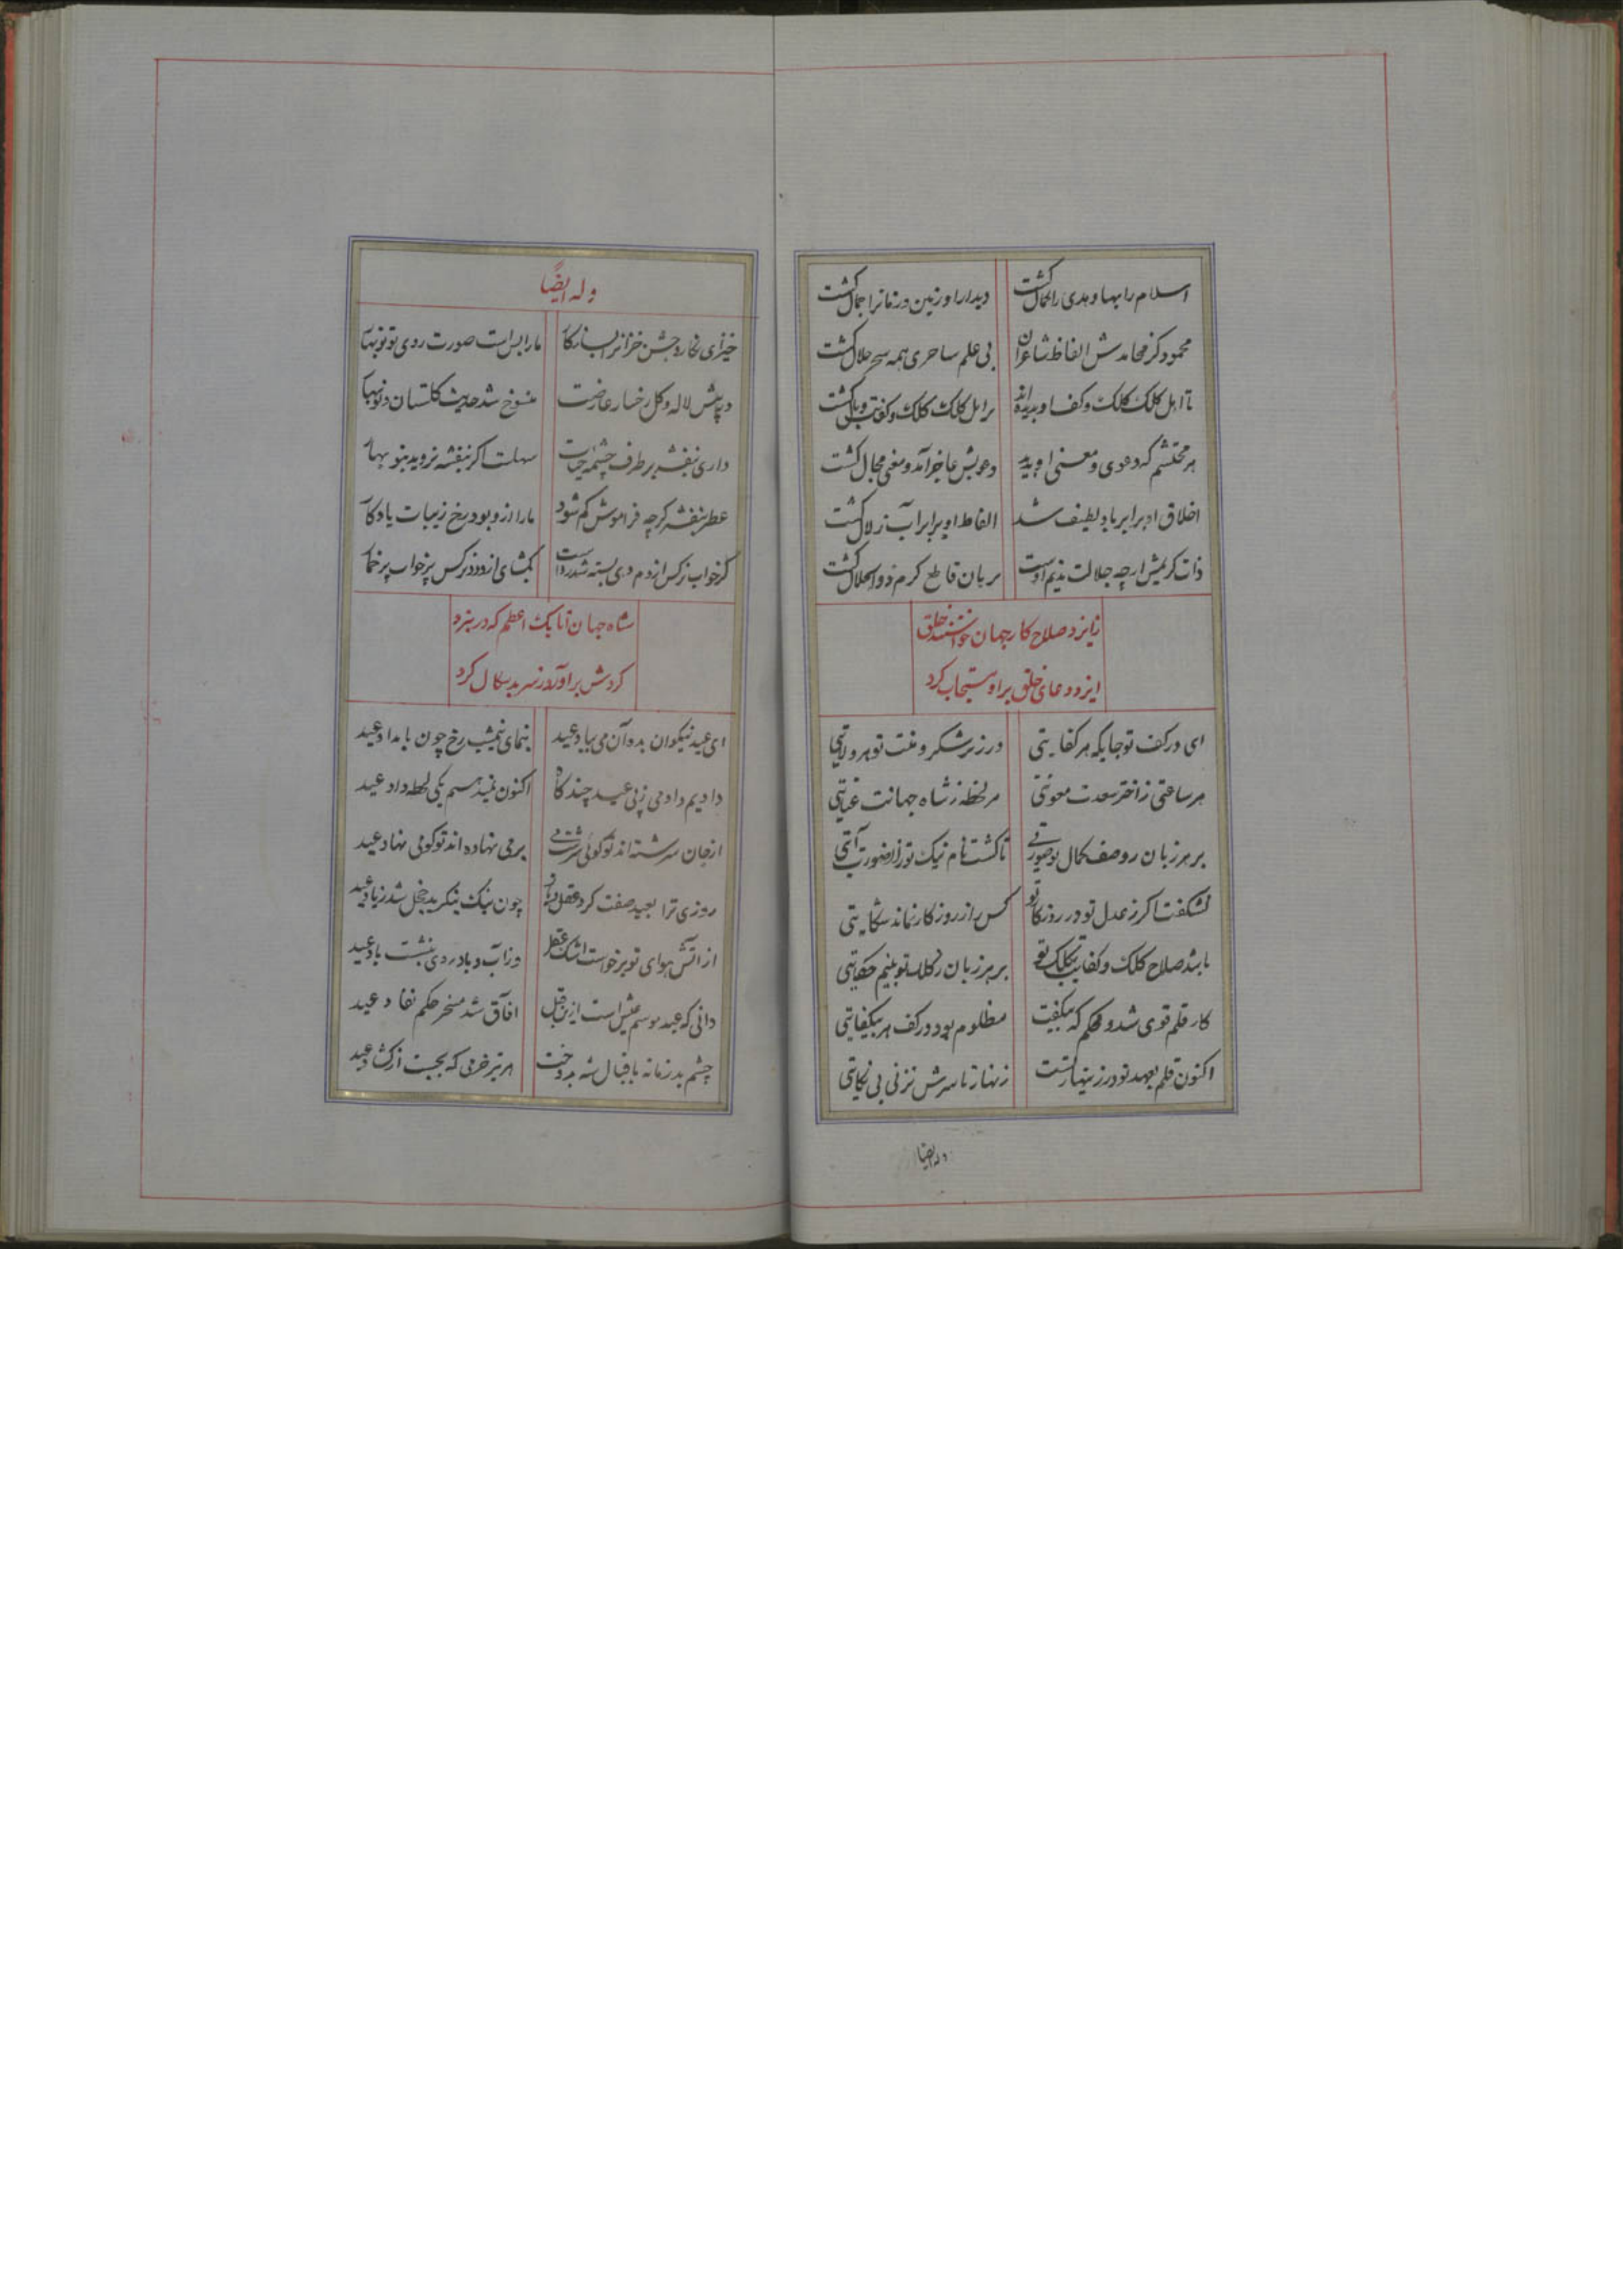 اسلام را بها و هدی را کمال گشت دیدار او زمین و زمانرا جمال گشت
محمود کز محامدش الفاظ شاعران بی علم ساحری همه سحر حلال گشت
تا اهل کلک کلک و کف او بدیده اند بر اهل کلک کلک و کفایت وبال گشت
هر محتشم که دعوی و معنی او بدید دعویش عاجز آمد و معنی محال گشت
اخلاق او برابر باد لطیف شد الفاظ او برابر آب زلال گشت
ذات کریمش ارچه جلالت ندیم اوست برهان قاطع کرم ذوالجلال گشت
زایزد صلاح کار جهان خواستند خلق
ایزد دعای خلق براو مستجاب کرد
ای در کف تو جایکه هر کفایتی در زیر شکر و منت تو هر ولایتی
هر ساعتی ز اختر سعدت معونتی هر لحظه ز شاه جهانت عنایتی
بر هر زبان ز وصف کمال تو صورتی تا گشت نام نیک تو زان صورت آیتی
نشکفت اگر ز عدل تو در روزگار تو کس را ز روزگار نماند شکایتی
باشد صلاح کلک و کفایت بکلک تو بر هر زبان ز کلک تو بینم حکایتی
کار قلم قوی شد و محکم که بیکفیت مظلوم بود در کف هر بیکفایتی
اکنون قلم بعهد تو در زینهار تست زنهار تا سرش نزنی بی نکایتی
وله ایضا
وله ایضاً
خیز ای نگار و جشن خزانرا بساز کار ما را بس است صورت روی تو نوبهار
در پیش لاله و گل رخسار عارضت منسوخ شد حدیث گلستان و نوبهار
داری بنفشه بر طرف چشمه حیات سهلست اگر بنفشه نروید بنوبهار
عطر بنفشه گرچه فراموش کم شود ما را از او بود رخ زیبات یادگار
گر خواب نرگس از دم دی بسته شد رواست بگشای از دو نرگس پر خواب پر خمار
شاه جهان اتابک اعظم که در نبرد
گردش برآورد ز سر بدسگال گرد
ای عید نیکوان بده آن می بیاد عید بنمای نیمشب رخ چون بامداد عید
دادیم داد می ز پی عید چند گاه اکنون بمیدهیم یکی لحظه داد عید
از جان سرشته اند تو گوئی سرشت می بر می نهاده اند تو گوئی نهاد عید
روزی ترا بعید صفت کرد عقل و باز چون نیک بنگرید خجل شد ز یاد عید
از آتش هوای تو برخواست اشک عقل وز آب و باد روی بنشست باد عید
دانی که عید موسم عیش است ازین قبل آفاق شد مسخر حکم نفاد عید
چشم بد زمانه باقبال شه بدوخت هر تیر خرمی که بجست از گشاد عید